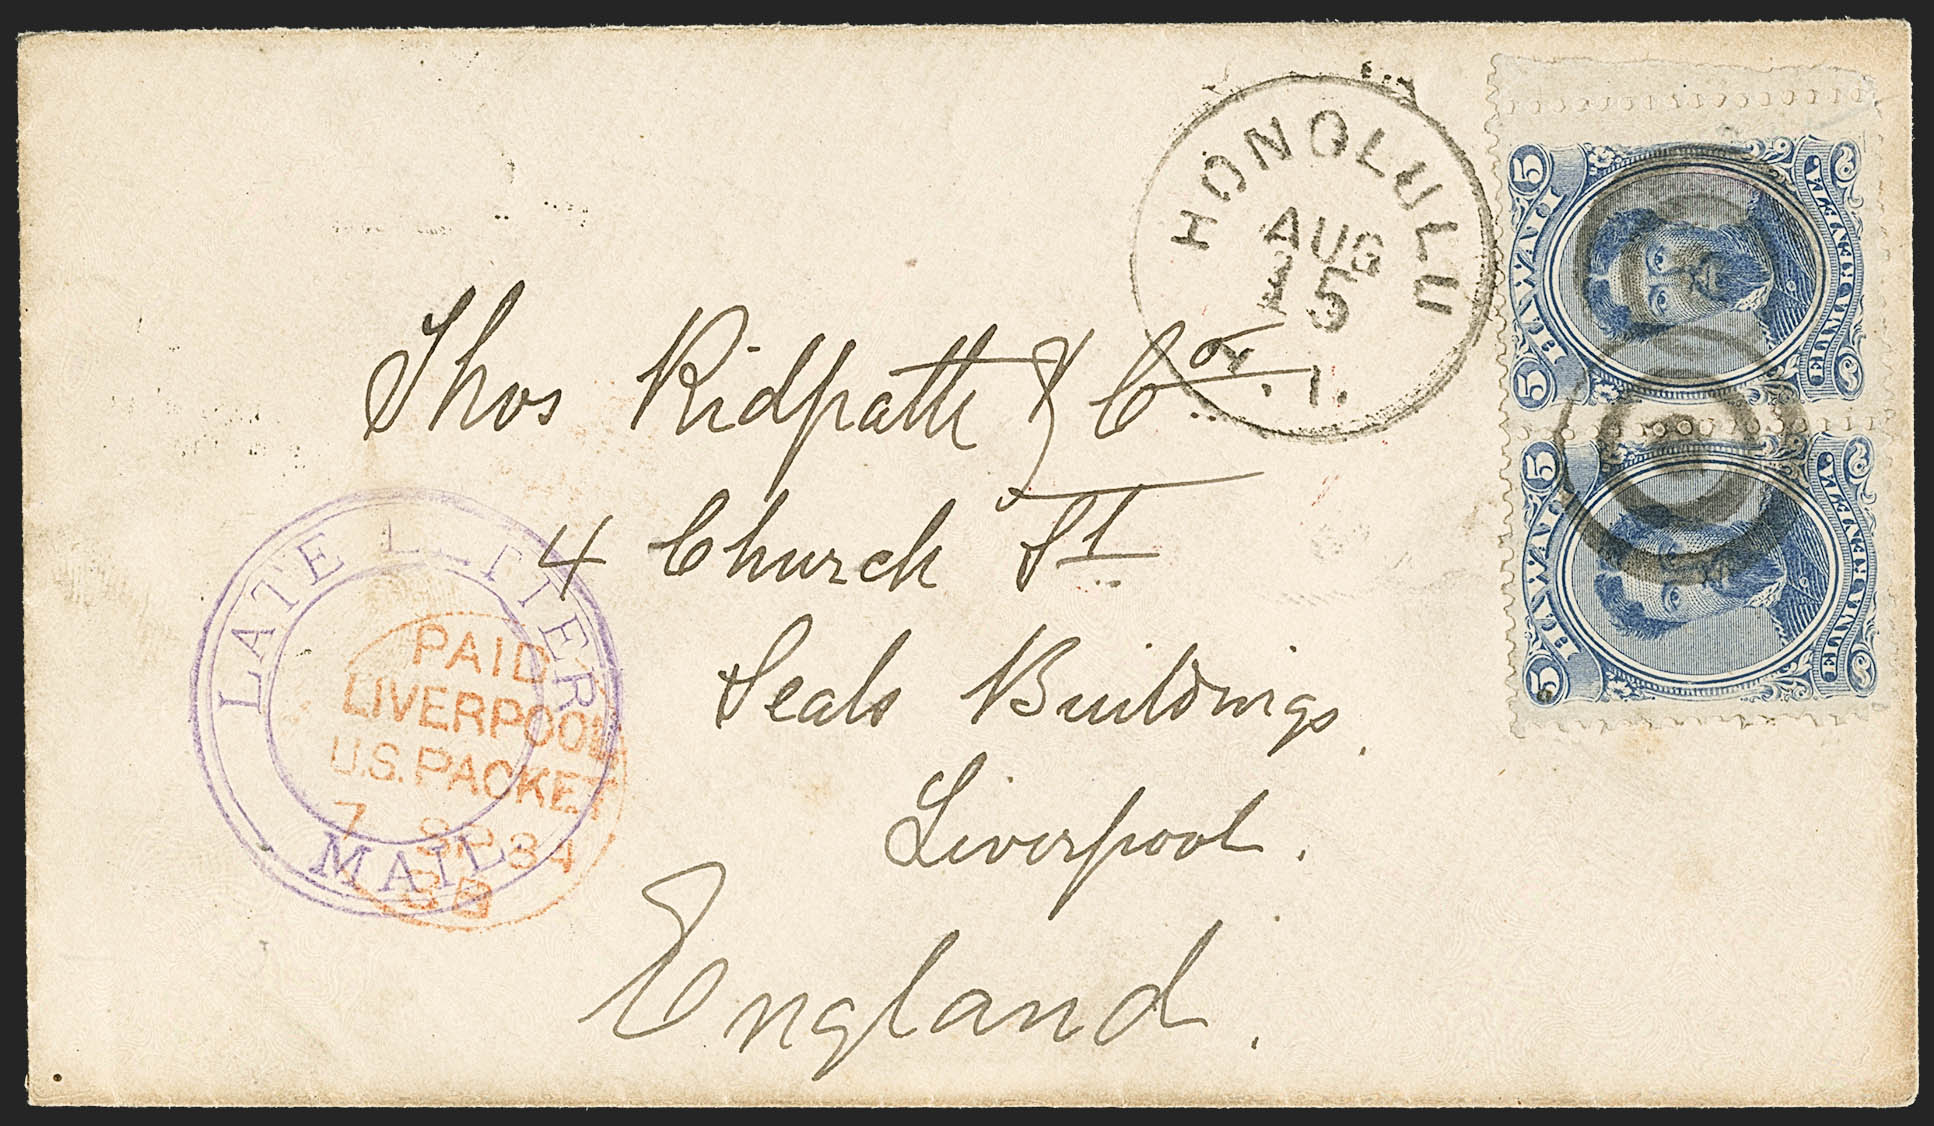 HONOLULU
AUG
15
. 1.
5 HAWAII 5
5 HAWAII 5
Thos Ridpath & Co
4 Church St
Seals Buildings
Liverpool.
England.
LATE LETTER
MAIL
PAID
LIVERPOOL
U.S. PACKET
7 SP 84